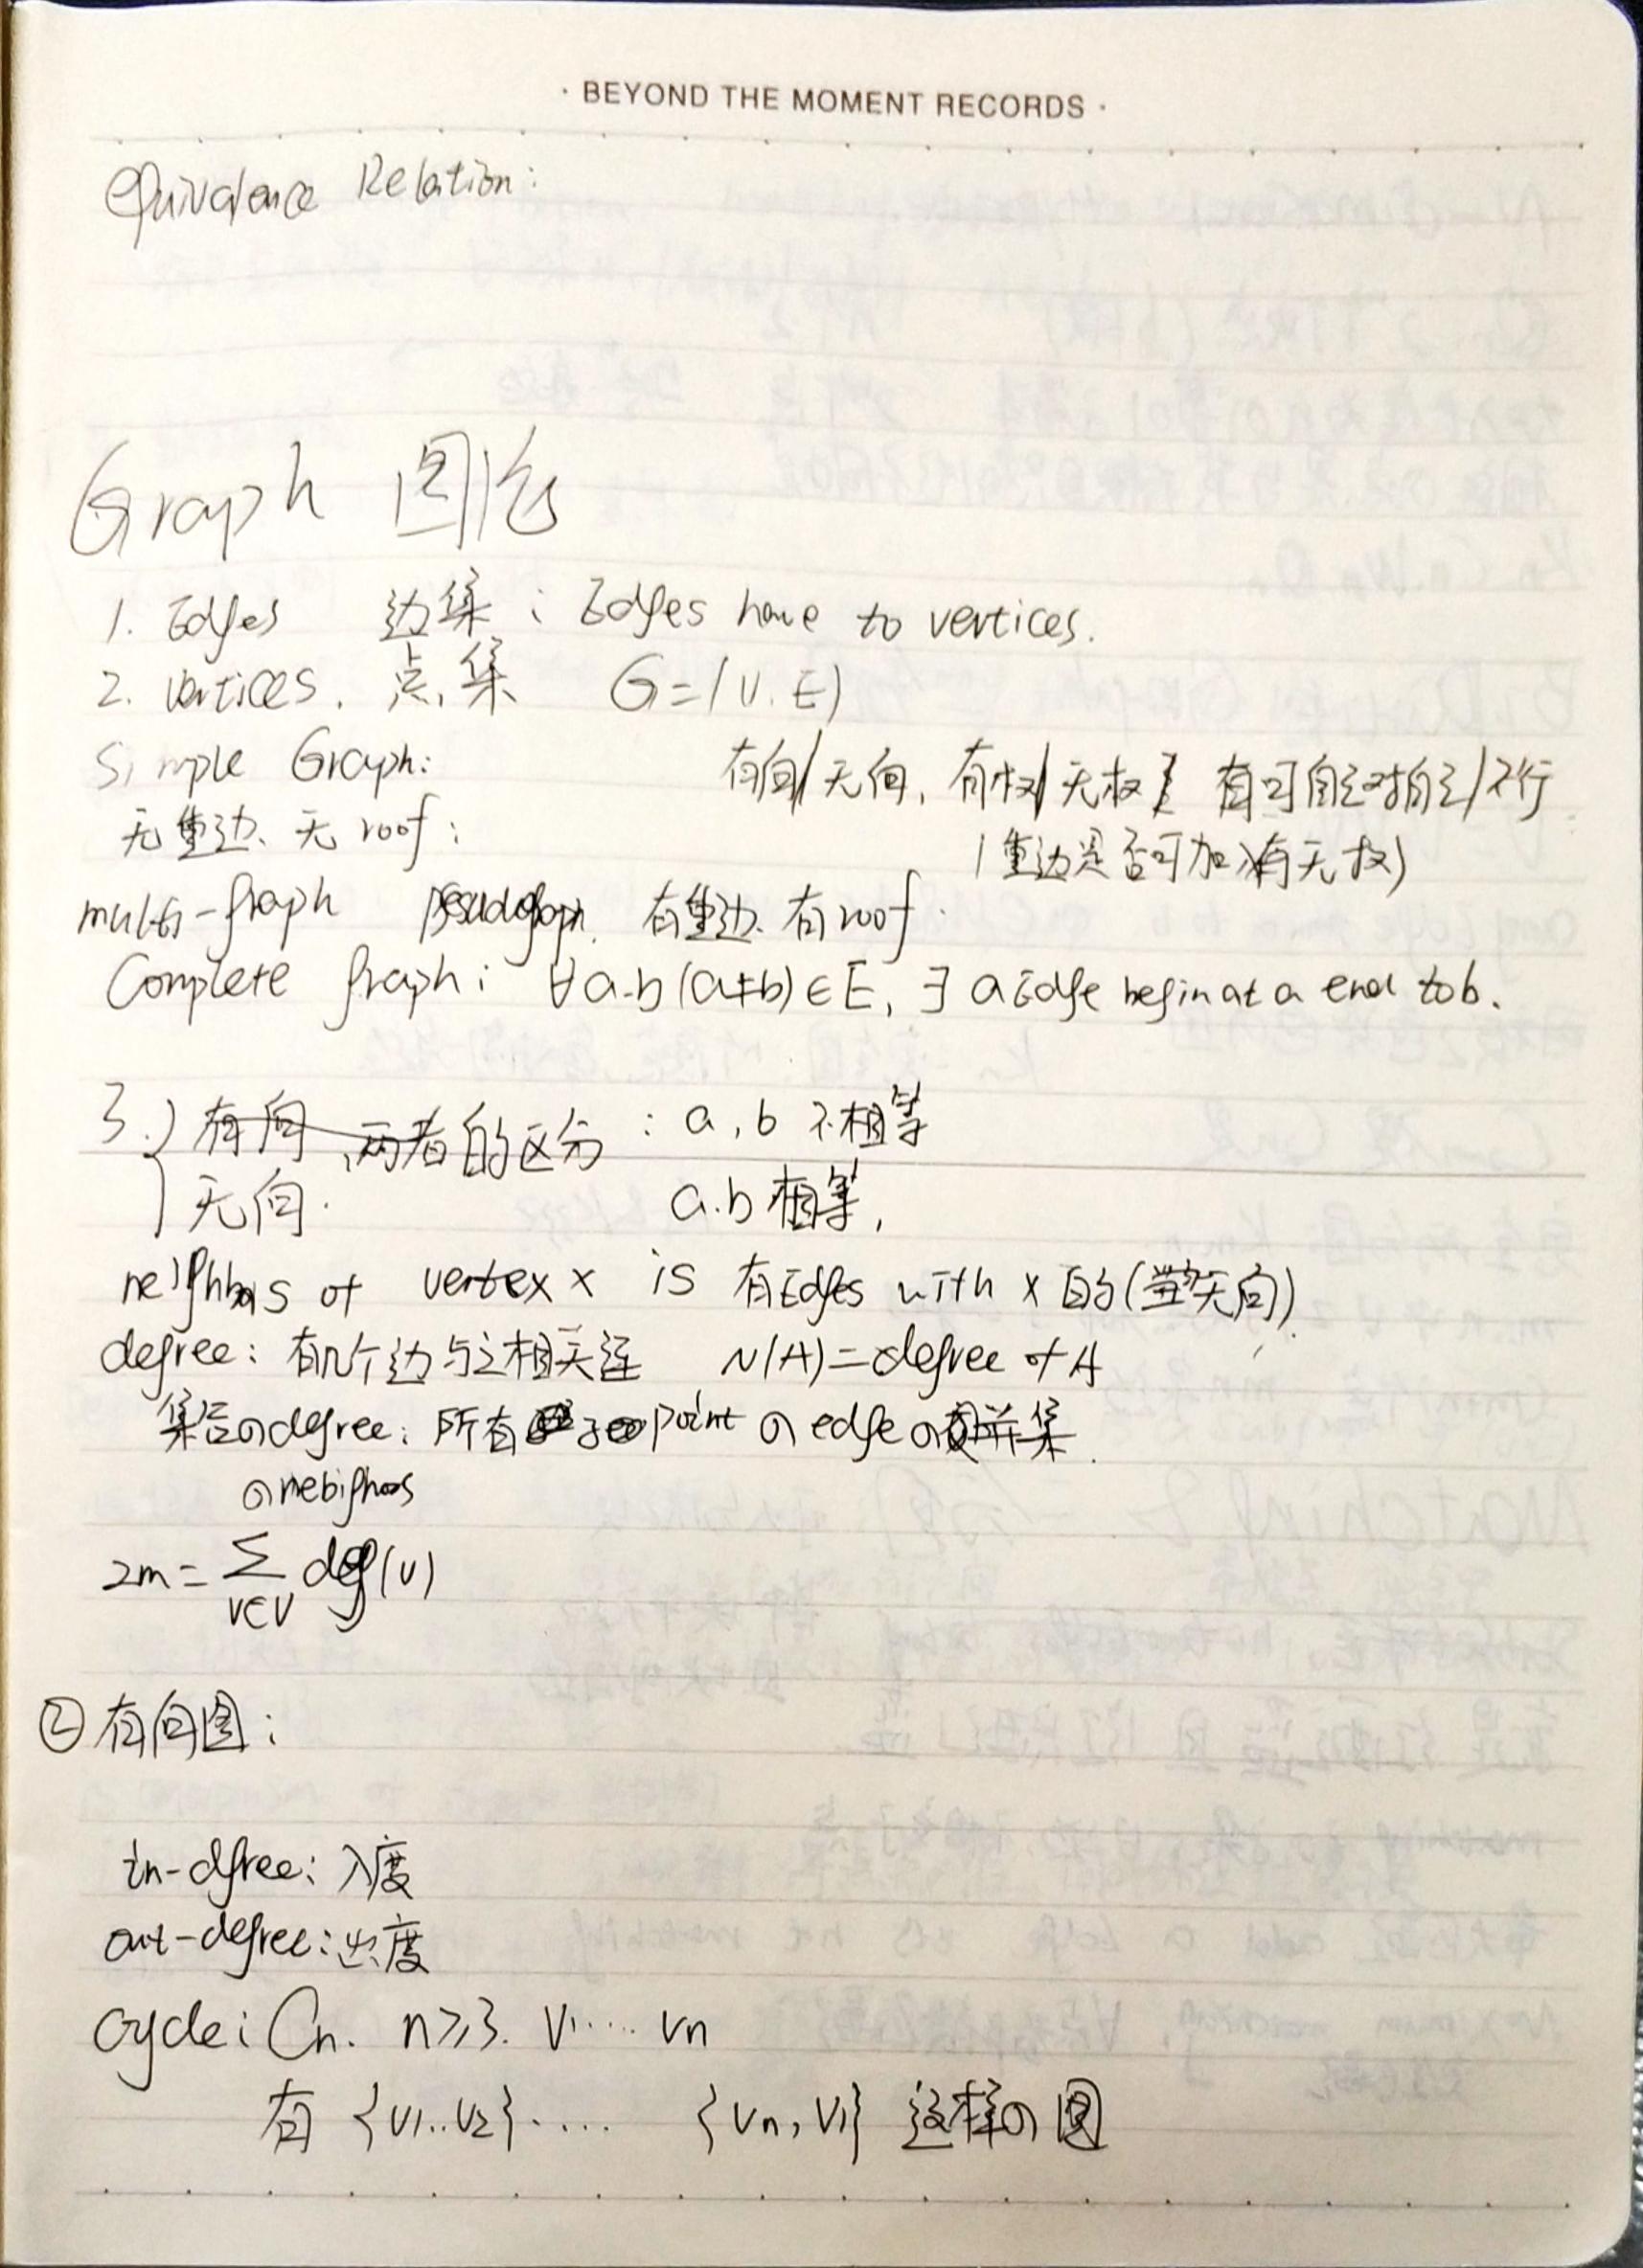 · BEYOND THE MOMENT RECORDS ·
equivalence Relation:
Graph 图论
1. Edges 边集: Edges have to vertices.
2. vertices. 点集 G=(V.E)
Simple Graph: 有向/无向, 有权/无权 有可自己对自己/不行
无重边、无 roof: (重边是否可加 有无权)
multi-graph pseudograph. 有重边. 有roof.
Complete graph: ∀a.b(a≠b)∈E, ∃ a Edge begin at a end to b.
3.) 有向 两者的区分: a,b 不相等
无向. a.b 相等,
neighbors of vertex x is 有Edges with x 的(无向)
degree: 有几个边与之相关连 N(A)=degree of A
集合のdegree: 所有 point の edge の并集.
の nebighors
2m = ∑ deg(v)
v∈V
② 有向图:
in-dgree: 入度
out-degree: 出度
cycle: Cn. n≥3. v1.... vn
有 {v1..v2}.... {vn, v1} 这样の图